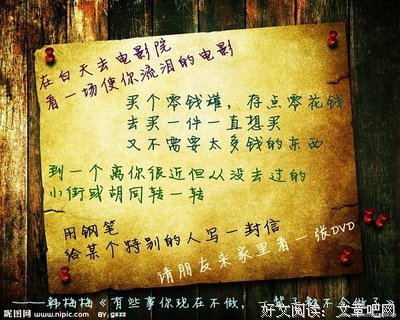 在白天去电影院
看一场使你流泪的电影
买个零钱罐，存点零花钱
去买一件一直想买
又不需要太多钱的东西
到一个离你很近但从没去过的
小街或胡同转一转
用钢笔
给某个特别的人写一封信
请朋友来家里看一张DVD
——韩梅梅《有些事你现在不做，一辈子都不会做了》
昵图网 www.nipic.com
By: gszz
好文阅读：文章吧网